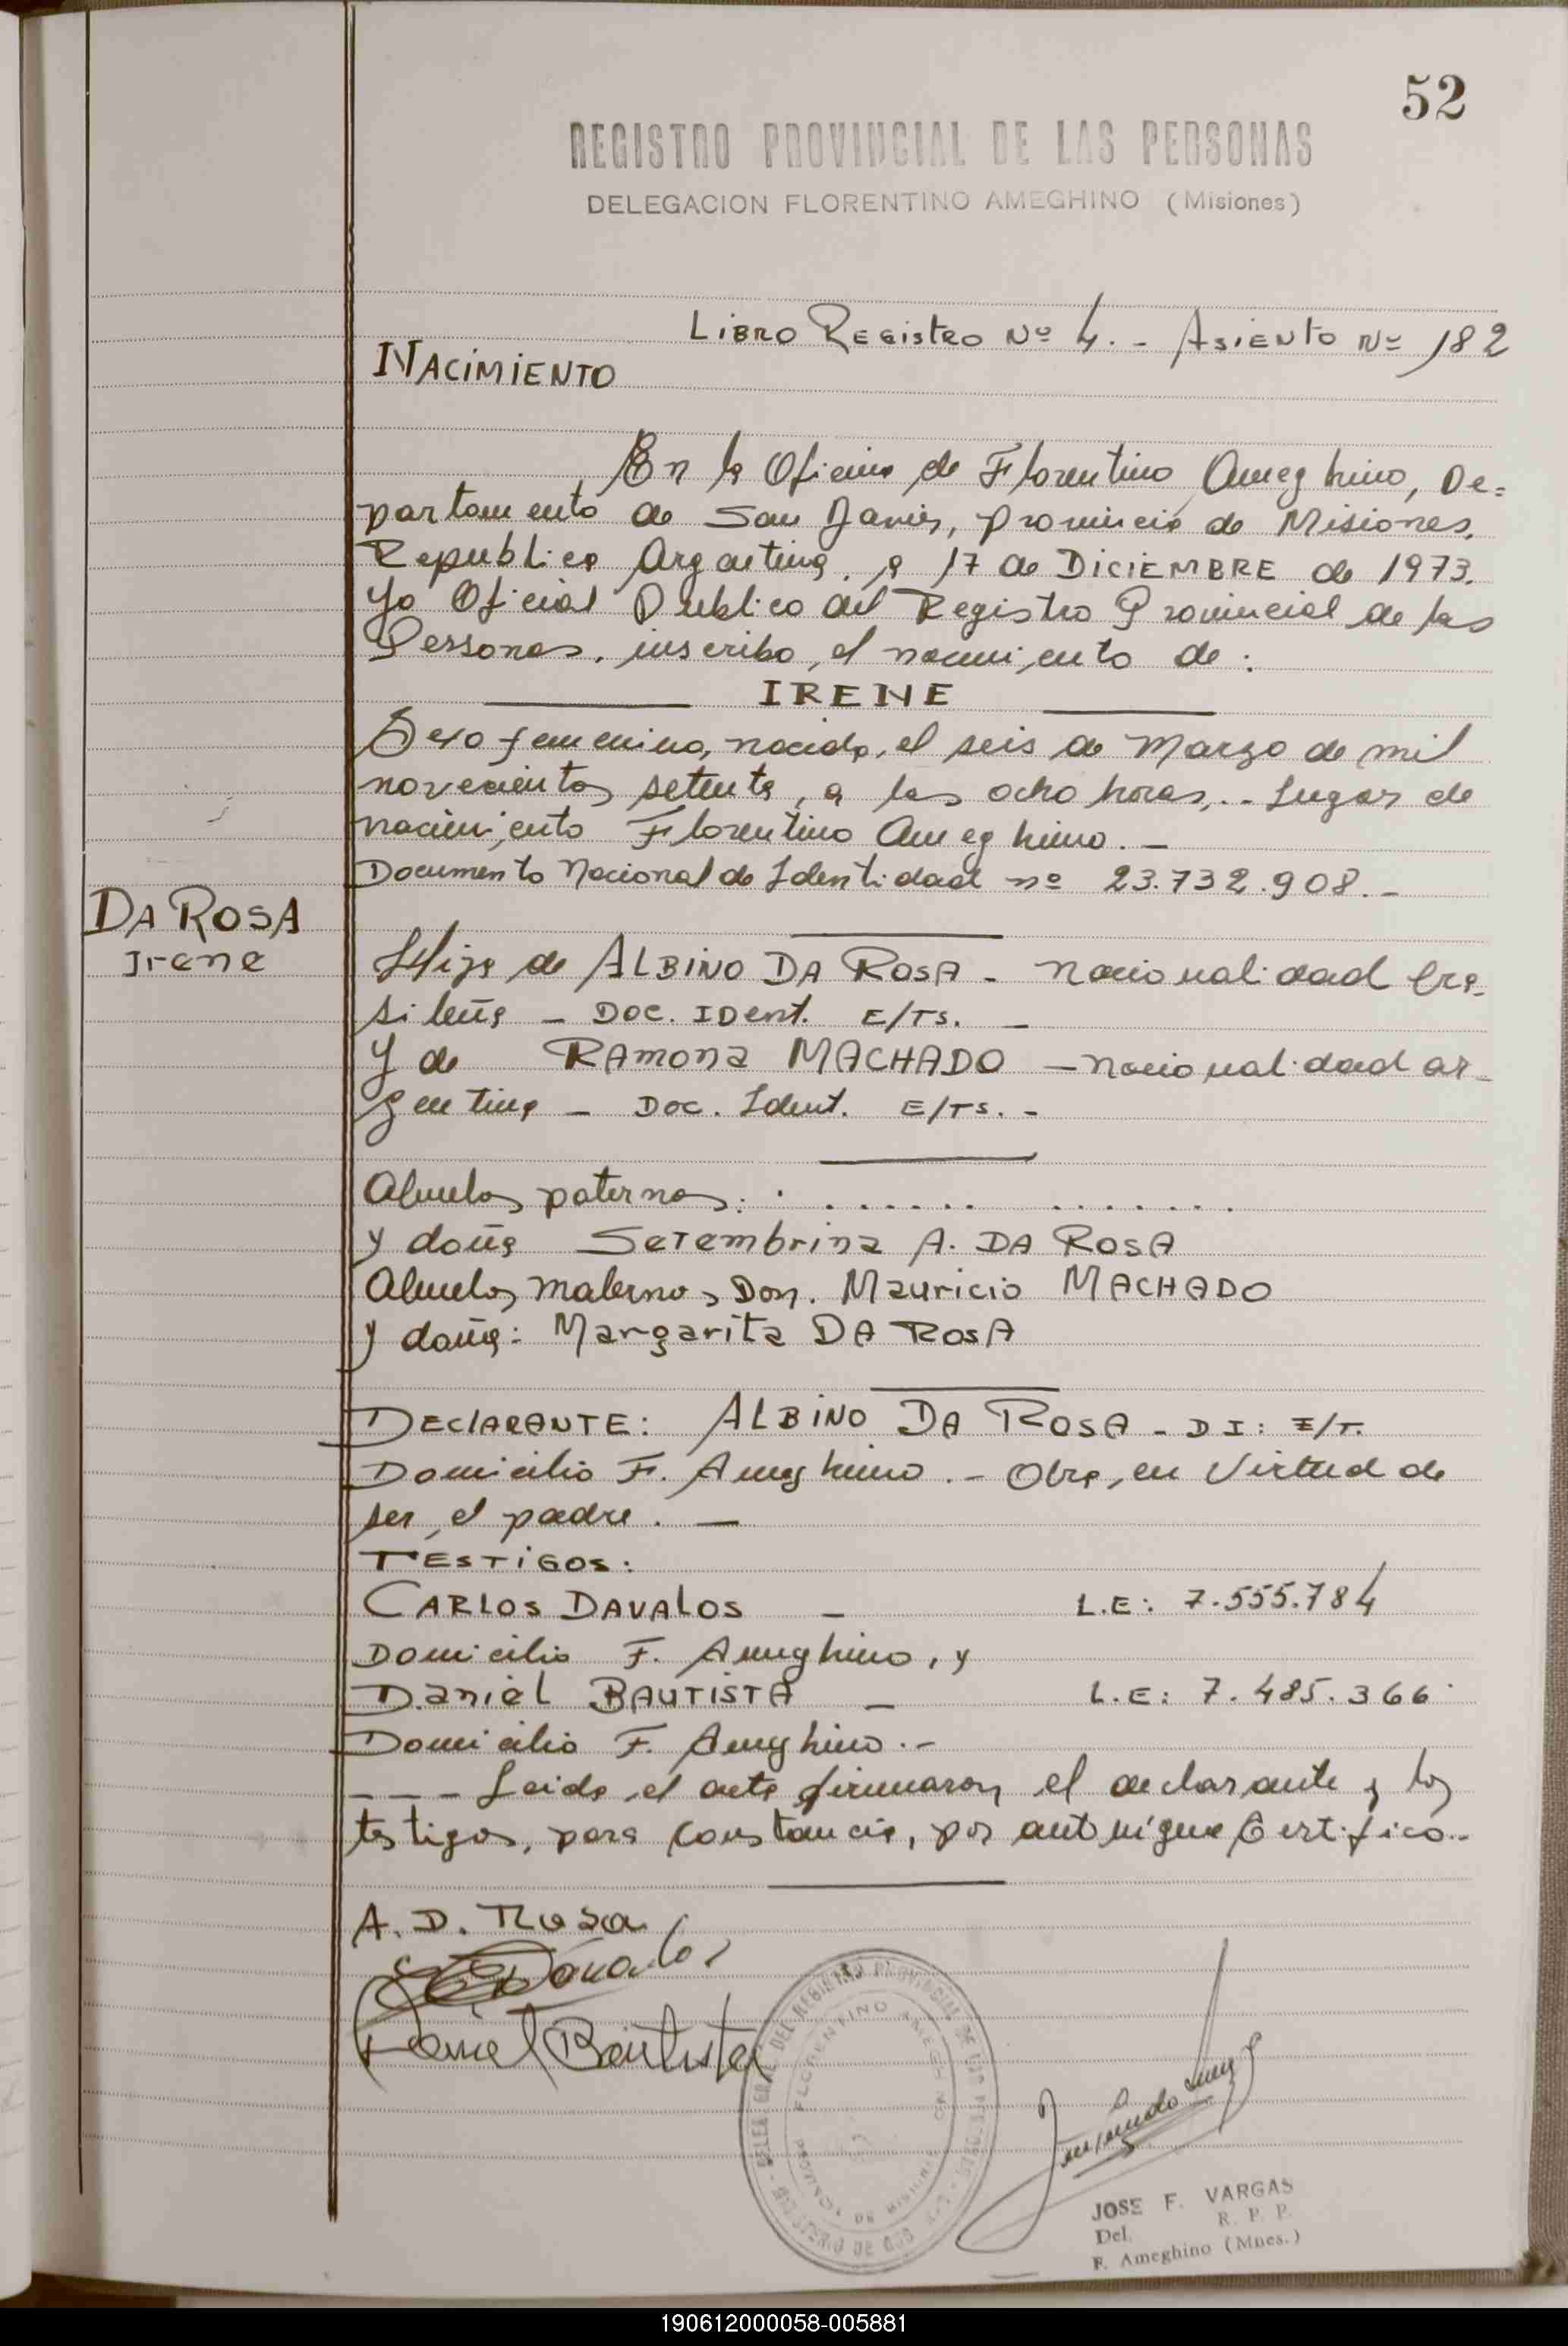 52
REGISTRO PROVINCIAL DE LAS PERSONAS
DELEGACION FLORENTINO AMEGHINO (Misiones)
LIBRO REGISTRO Nº 4. - ASIENTO Nº 182
NACIMIENTO
En la Oficina de Florentino Ameghino, De=
partamento de San Javier, provincia de Misiones,
Republica Argentina, a 17 de DICIEMBRE de 1973.
Yo Oficial Publico del Registro Provincial de las
Personas, inscribo, el nacimiento de:
IRENE
Sexo femenino, nacida, el seis de Marzo de mil
novecientos setenta, a las ocho horas,.. Lugar de
nacimiento Florentino Ameghino. -
Documento Nacional de Identidad nº 23.732.908. -
DA ROSA
Irene
Hija de ALBINO DA ROSA - nacionalidad bra-
sileña - DOC. IDent. E/TS. -
Y de RAMONA MACHADO - nacionalidad ar-
gentina - DOC. Ident. E/TS. -
Abuelos paternos: . . . . . . . . . . . . . . .
y doña SETEMbrina A. DA ROSA
Abuelos maternos Don. Mauricio MACHADO
y doña: Margarita DA ROSA
DECLARANTE: ALBINO DA ROSA - D I: E/T.
Domicilio F. Ameghino. - Obra, en Virtud de
ser, el padre. -
TESTIGOS:
CARLOS DAVALOS - L.E: 7.555.784
Domicilio F. Ameghino, y
Daniel BAUTISTA - L.E: 7.485.366
Domicilio F. Ameghino. -
- - - Leida, el acta firmaron el declarante y los
testigos, para constancia, por ante mí que Certifico..
A. D. Rosa
Davalos
Daniel Bautista
FLORENTINO AMEGHINO
PROVINCIA DE MISIONES
JOSE F. VARGAS
Del. R. P. P.
F. Ameghino (Mnes.)
190612000058-005881